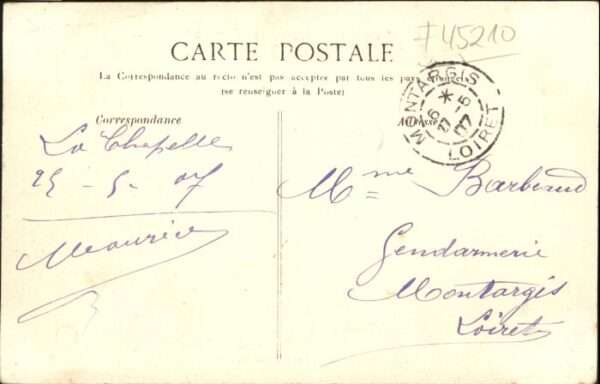 #45210
CARTE POSTALE
La Correspondance au recto n'est pas acceptée par tous les pays étrangers
(se renseigner à la Poste)
MONTARGIS
LOIRET
Correspondance
Adresse
La Chapelle
25 - 5 - 07
Maurice
Mme Barberud
Gendarmerie
Montargis
Loiret